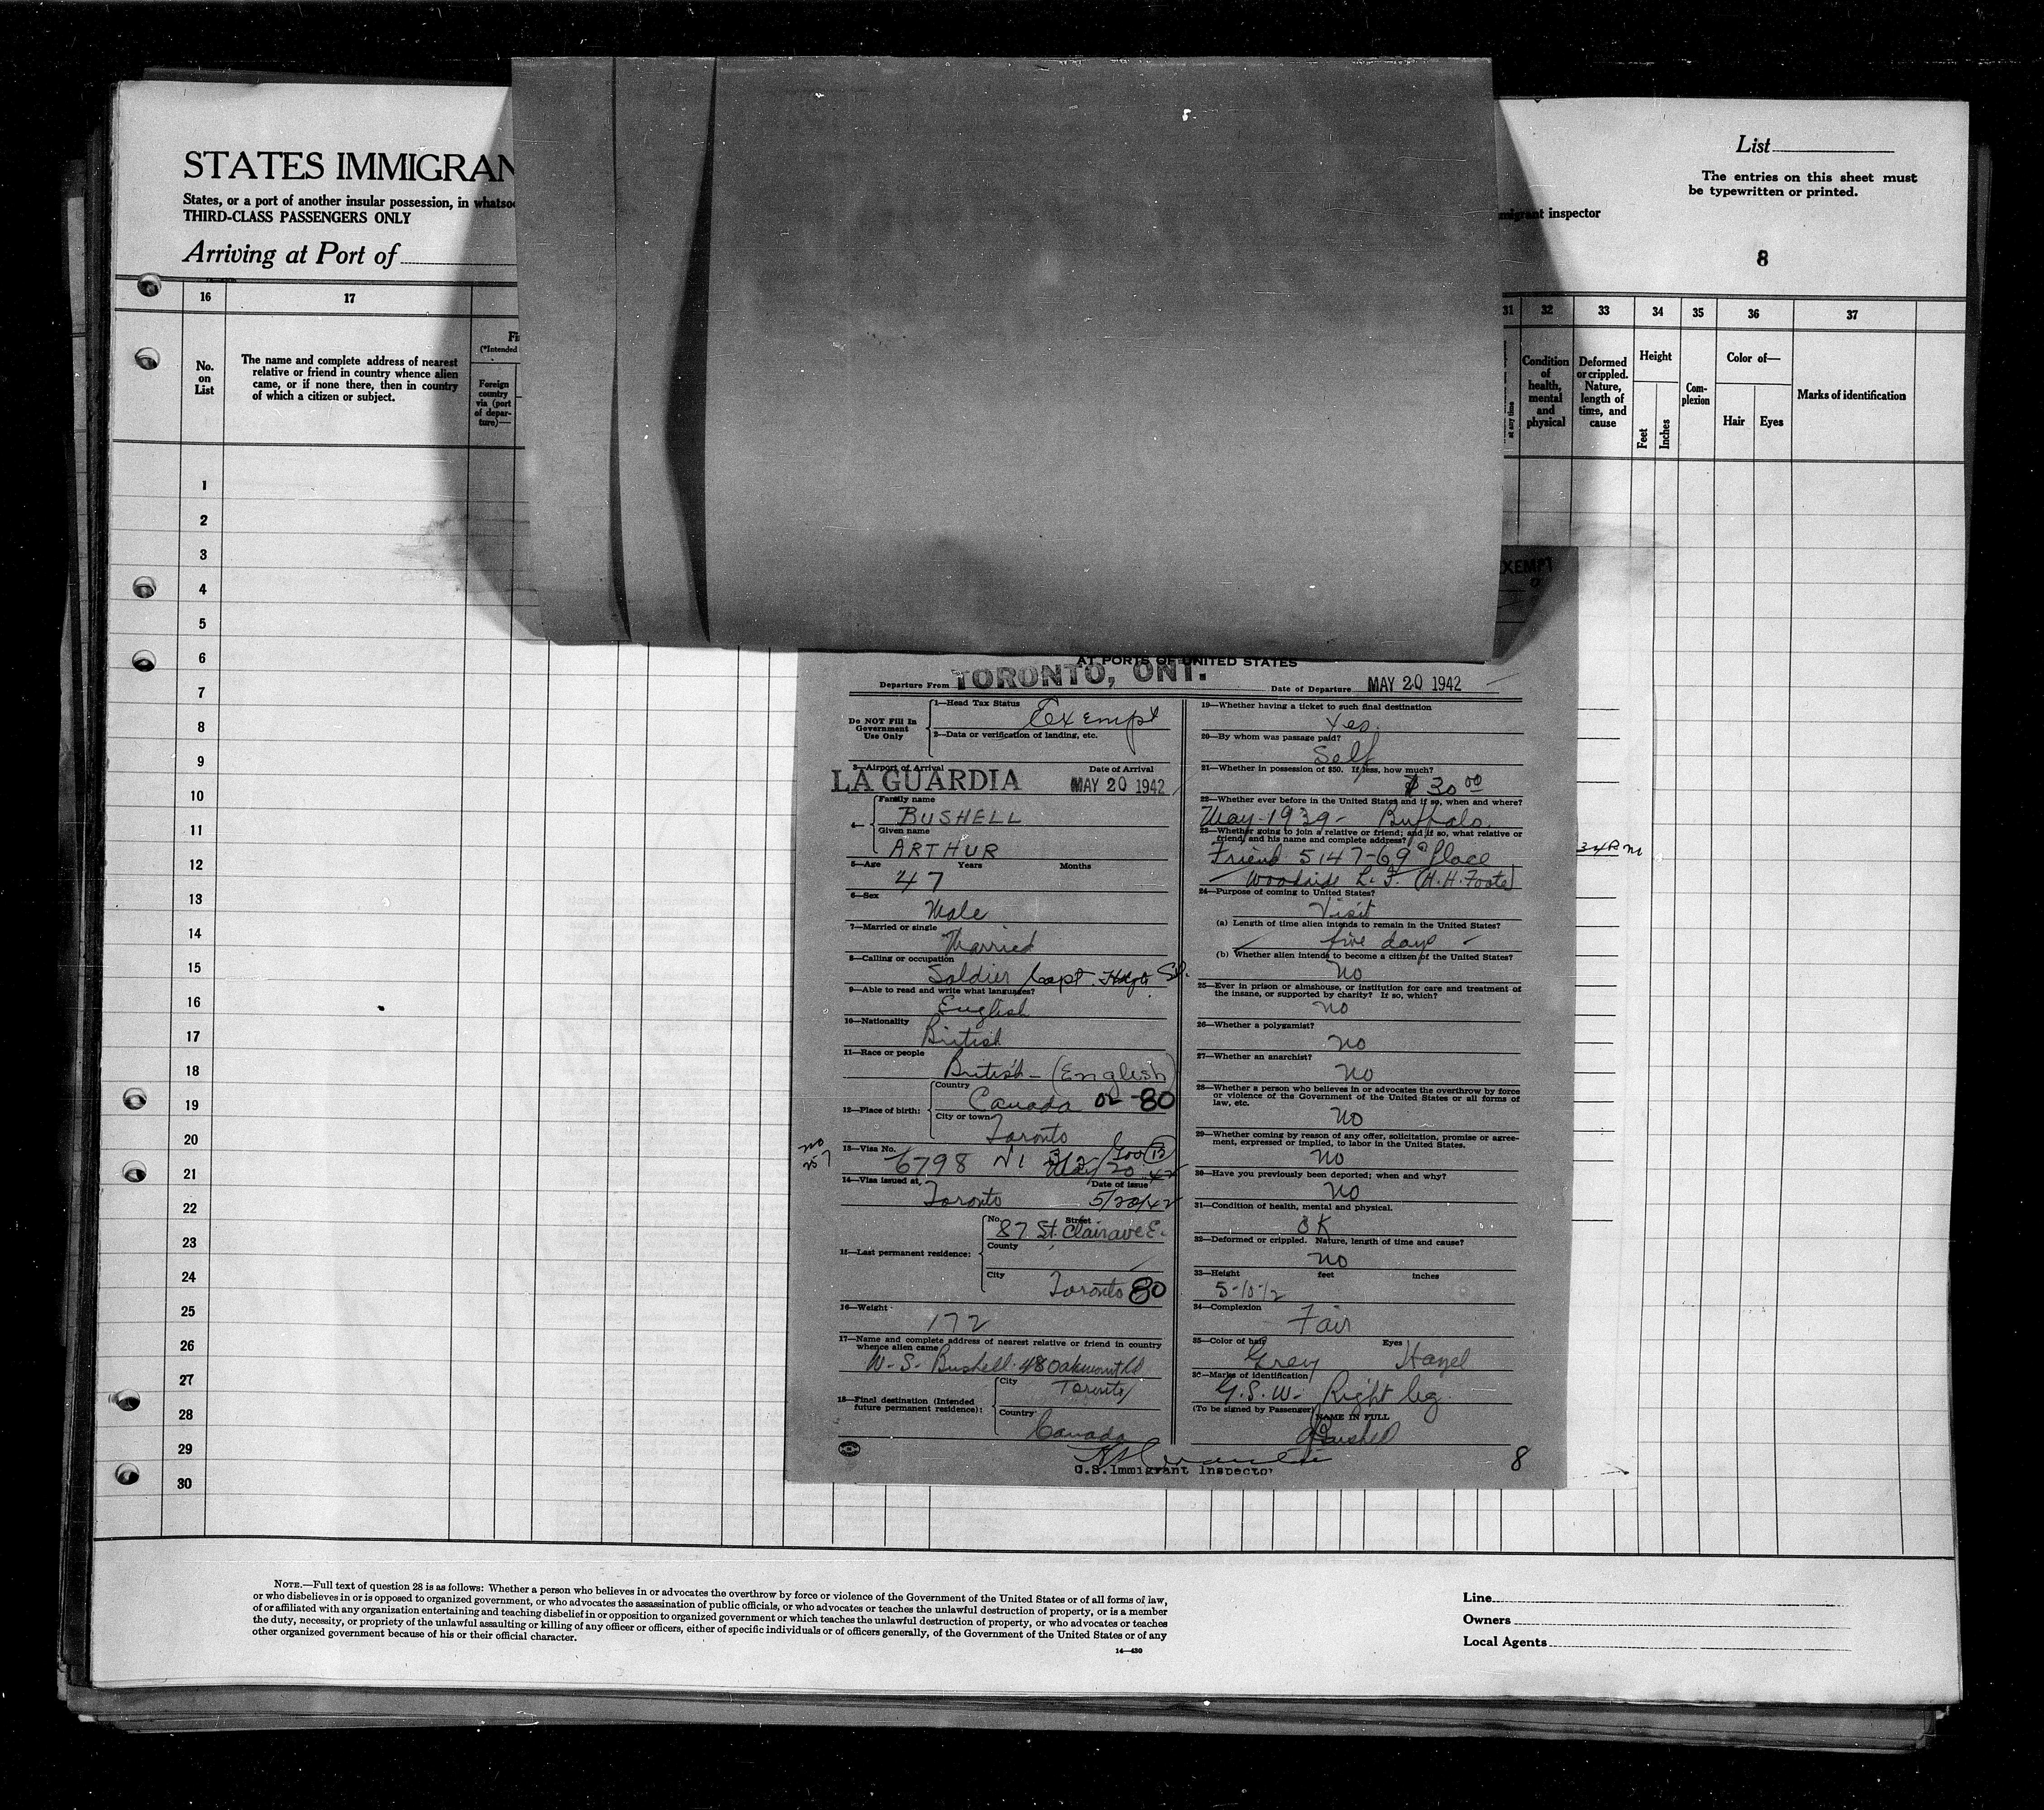 STATES IMMIGRAN
States, or a port of another insular possession, in whatso
THIRD-CLASS PASSENGERS ONLY
Arriving at Port of
List
The entries on this sheet must
be typewritten or printed.
migrant inspector
8
16
17
31
32
33
34
35
36
37
No.
on
List
The name and complete address of nearest
relative or friend in country whence alien
came, or if none there, then in country
of which a citizen or subject.
Fi
(*Intended
Foreign
country
via (port
of depar-
ture)—
at any time
Condition
of
health,
mental
and
physical
Deformed
or crippled.
Nature,
length of
time, and
cause
Height
Feet
Inches
Com-
plexion
Color of—
Hair
Eyes
Marks of identification
1
2
3
4
5
6
7
8
9
10
11
12
13
14
15
16
17
18
19
20
21
22
23
24
25
26
27
28
29
30
EXEMPT
AT PORTS OF UNITED STATES
Departure From TORONTO, ONT.
Date of Departure MAY 20 1942
Do NOT Fill In
Government
Use Only
1—Head Tax Status
Exempt
2—Data or verification of landing, etc.
3—Airport of Arrival
Date of Arrival
LA GUARDIA MAY 20 1942
4—
Family name
BUSHELL
Given name
ARTHUR
5—Age Years Months
47
6—Sex
Male
7—Married or single
Married
8—Calling or occupation
Soldier Capt.
9—Able to read and write what languages?
English
10—Nationality
British
11—Race or people
British — (English)
12—Place of birth:
Country
Canada 80
City or town
Toronto
13—Visa No.
6798 May 20 42
14—Visa issued at, Date of issue
Toronto 5/20/42
15—Last permanent residence:
No. Street
87 St. Clair ave E.
County
City
Toronto 80
16—Weight
172
17—Name and complete address of nearest relative or friend in country
whence alien came
W. S. Bushell. 48 Oakmount Rd
18—Final destination (Intended
future permanent residence):
City
Toronto
Country
Canada
U.S. Immigrant Inspector
19—Whether having a ticket to such final destination
Yes.
20—By whom was passage paid?
Self
21—Whether in possession of $50. If less, how much?
$ 30 00
22—Whether ever before in the United States and if so, when and where?
May - 1939 - Buffalo.
23—Whether going to join a relative or friend; and if so, what relative or
friend and his name and complete address?
Friend 5147-69 place
Woodside L. I. (H. H. Foote)
24—Purpose of coming to United States?
Visit
(a) Length of time alien intends to remain in the United States?
five days
(b) Whether alien intends to become a citizen of the United States?
No
25—Ever in prison or almshouse, or institution for care and treatment of
the insane, or supported by charity? If so, which?
no
26—Whether a polygamist?
no
27—Whether an anarchist?
no
28—Whether a person who believes in or advocates the overthrow by force
or violence of the Government of the United States or all forms of
law, etc.
no
29—Whether coming by reason of any offer, solicitation, promise or agree-
ment, expressed or implied, to labor in the United States.
no
30—Have you previously been deported; when and why?
no
31—Condition of health, mental and physical.
OK
32—Deformed or crippled. Nature, length of time and cause?
no
33—Height feet inches
5-10-½
34—Complexion
Fair
35—Color of hair Eyes
Grey Hazel
36—Marks of identification
G.S.W. Right leg.
(To be signed by Passenger)
NAME IN FULL
A Bushell
8
NOTE.—Full text of question 28 is as follows: Whether a person who believes in or advocates the overthrow by force or violence of the Government of the United States or of all forms of law,
or who disbelieves in or is opposed to organized government, or who advocates the assassination of public officials, or who advocates or teaches the unlawful destruction of property, or is a member
of or affiliated with any organization entertaining and teaching disbelief in or opposition to organized government or which teaches the unlawful destruction of property, or who advocates or teaches
the duty, necessity, or propriety of the unlawful assaulting or killing of any officer or officers, either of specific individuals or of officers generally, of the Government of the United States or of any
other organized government because of his or their official character.
14—430
Line
Owners
Local Agents